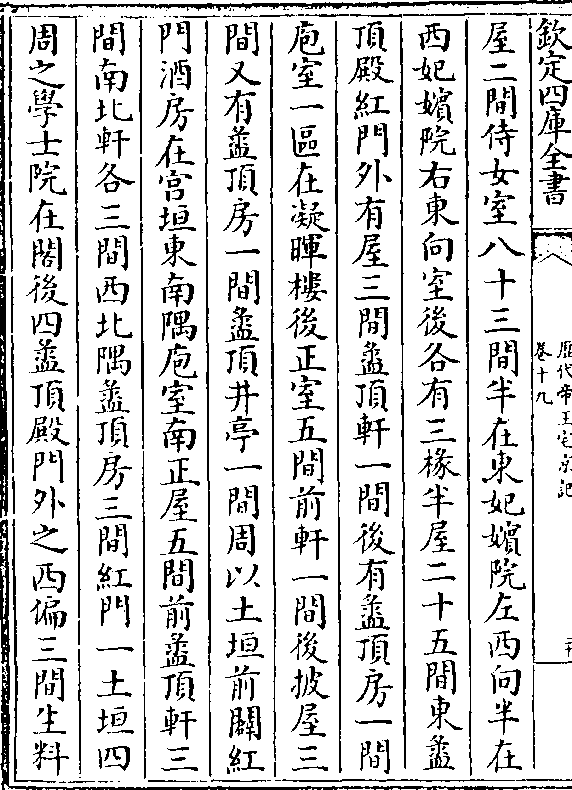 欽定四庫全書
歷代帝王宅京記
卷十九
屋二間侍女室八十三間半在東妃嬪院左西向半在
西妃嬪院右東向室後各有三椽半屋二十五間東盝
頂殿紅門外有屋三間盝頂軒一間後有盝頂房一間
庖室一區在凝暉樓後正室五間前軒一間後披屋三
間又有盝頂房一間盝頂井亭一間周以土垣前闢紅
門酒房在宫垣東南隅庖室南正屋五間前盝頂軒三
間南北軒各三間西北隅盝頂房三間紅門一土垣四
周之學士院在閣後四盝頂殿門外之西偏三間生料